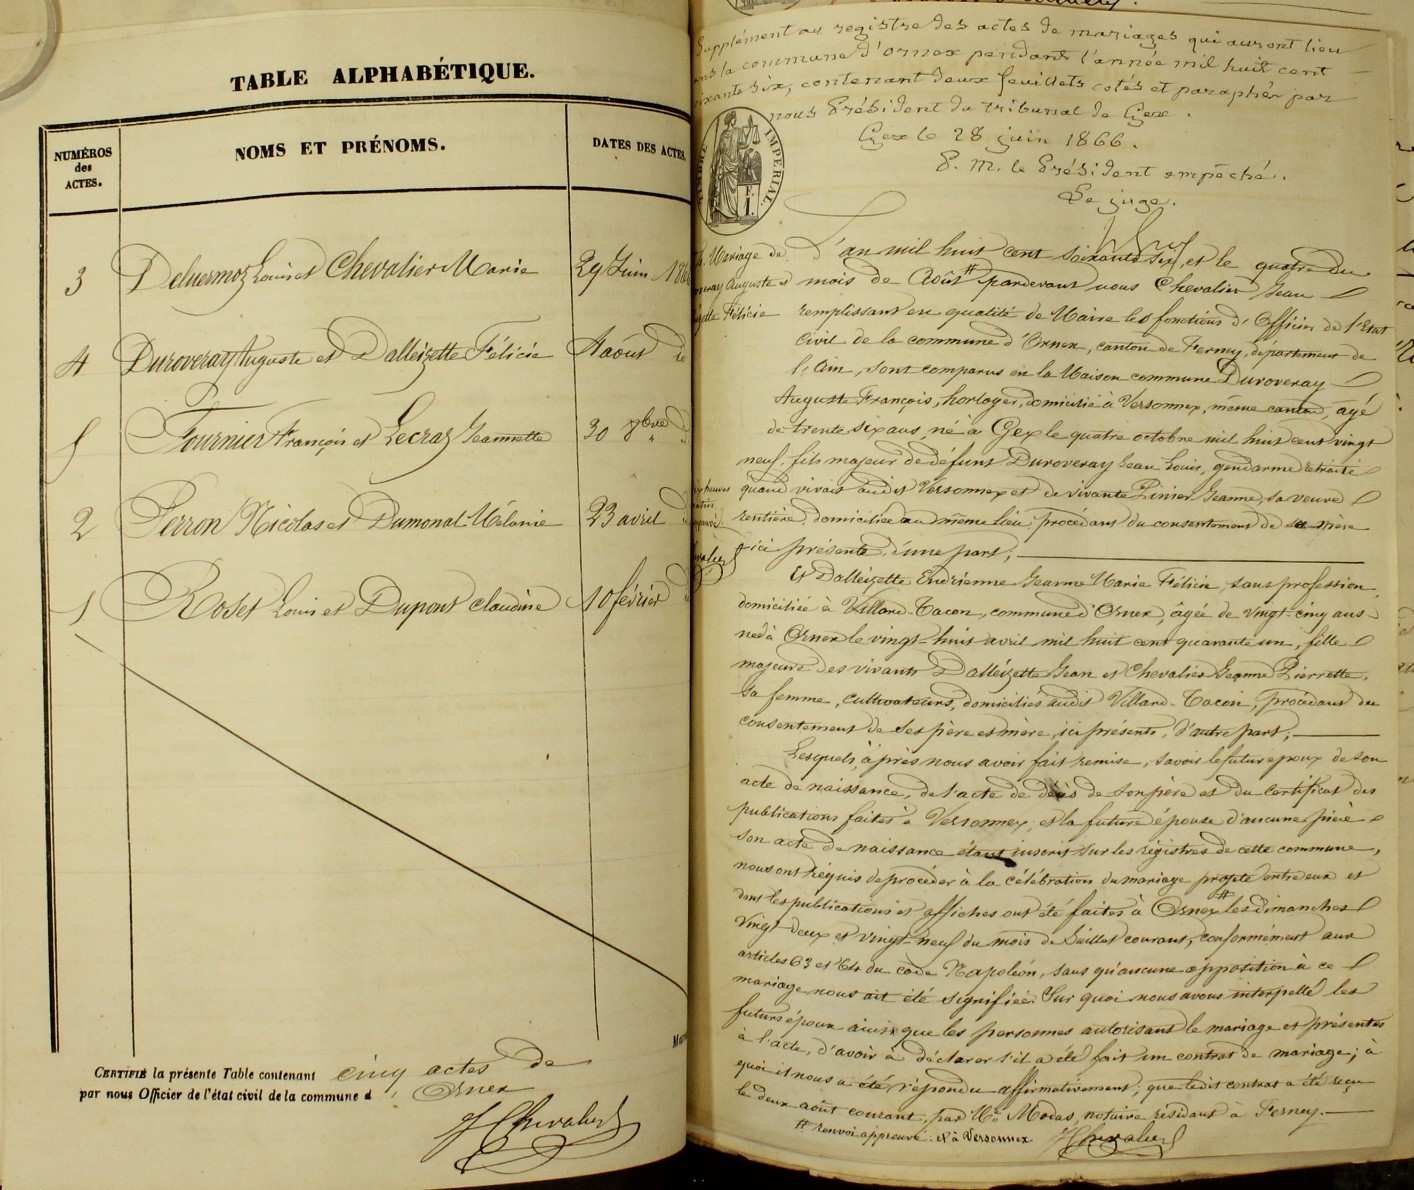 TABLE ALPHABÉTIQUE.
NUMÉROS
des
ACTES.
NOMS ET PRÉNOMS.
DATES DES ACTES.
3 Deluermoz Louis et Chevalier Marie 29 Juin 186
4 Duroveray Auguste et Dalleizette Félicie 4 août de
5 Fournier François et Lecraz Jeannette 30 8bre d
2 Perron Nicolas et Dumonal Mélanie 23 avril d
1 Rodet Louis et Dupont Claudine 10 février d
CERTIFIÉ la présente Table contenant cinq actes de
par nous Officier de l'état civil de la commune d'Ornex
J Chevalier
Supplément au registre des actes de mariages qui auront lieu
dans la commune d'Ornex pendant l'année mil huit cent
soixante six, contenant deux feuillets cotés et paraphés par
nous Président du tribunal de Gex.
Gex le 28 juin 1866.
P. M. le Président empêché.
Le juge.
TIMBRE IMPÉRIAL.
E.
I.
Mariage de
Duroveray Auguste et
Dalleizette Félicie
L'an mil huit cent soixante six, et le quatre du
mois de Août # pardevant nous Chevalier Jean
remplissant en qualité de Maire les fonctions d'Officier de l'Etat
Civil de la commune d'Ornex, canton de Ferney, département de
l'Ain, sont comparus en la Maison commune Duroveray
Auguste François, horloger, domicilié à Versonnex, même canton, âgé
de trente six ans, né à Gex le quatre octobre mil huit cent vingt
neuf, fils majeur de défunt Duroveray Jean Louis, gendarme retraité
quand vivait audit Versonnex et de vivante Pinier Jeanne, sa veuve
rentière domiciliée au même lieu, procédant du consentement de sa mère
ici présente, d'une part;
heures
matin
Chevalier
Et Dalleizette Endrienne Jeanne Marie Félicie, sans profession,
domiciliée à Villard-Tacon, commune d'Ornex, âgée de vingt-cinq ans
née à Ornex le vingt-huit avril mil huit cent quarante un, fille
majeure des vivants Dalleizette Jean et Chevalier Jeanne Pierrette,
sa femme, cultivateurs, domiciliés audit Villard-Tacon, procédant du
consentement de ses père et mère, ici présents, d'autre part;
Lesquels, après nous avoir fait remise, savoir le futur époux de son
acte de naissance, de l'acte de décès de son père et du certificat des
publications faites à Versonnex, et la future épouse d'aucune pièce
son acte de naissance étant inscrit sur les régistres de cette commune,
nous ont réquis de procéder à la célébration du mariage projeté entre eux et
dont les publications et affiches ont été faites à Ornex # les dimanches
vingt deux et vingt-neuf du mois de Juillet courant, conformément aux
articles 63 et 64 du code Napoléon, sans qu'aucune opposition à ce
mariage nous ait été signifiée. Sur quoi nous avons interpellé les
futurs époux ainsi que les personnes autorisant le mariage et présentes
à l'acte, d'avoir à déclarer s'il a été fait un contrat de mariage; à
quoi il nous a été répondu affirmativement, que ledit contrat a été reçu
le deux août courant, par Me Modas, notaire résidant à Ferney.
# renvoi approuvé: et à Versonnex J Chevalier